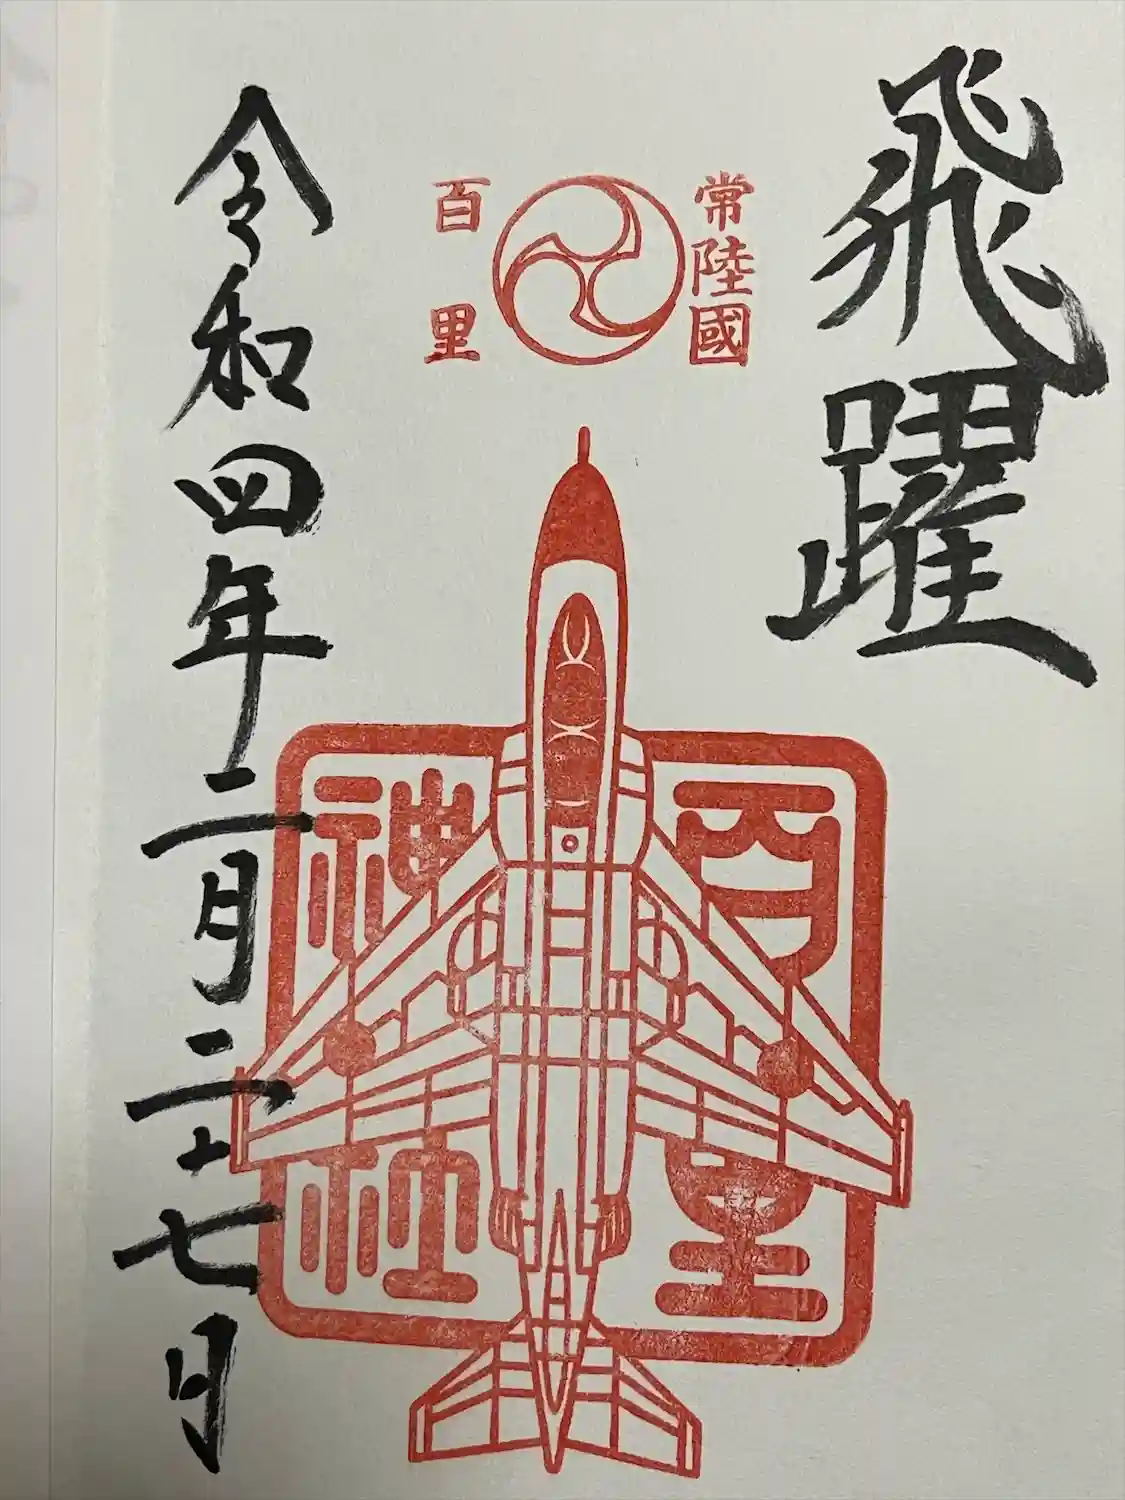 飛躍
常陸國
百里
百里
神社
令和四年二月二十七日